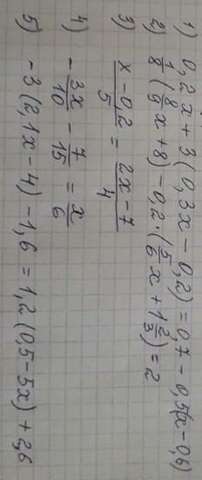 1) 0,2x + 3(0,3x - 0,2) = 0,7 - 0,5(x - 0,6)
2) 1/8 (8/9 x + 8) - 0,2 · (5/6 x + 1 2/3) = 2
3) x - 0,2 / 5 = 2x - 7 / 4
4) - 3x/10 - 7/15 = x/6
5) -3(2,1x - 4) - 1,6 = 1,2(0,5 - 5x) + 2,6